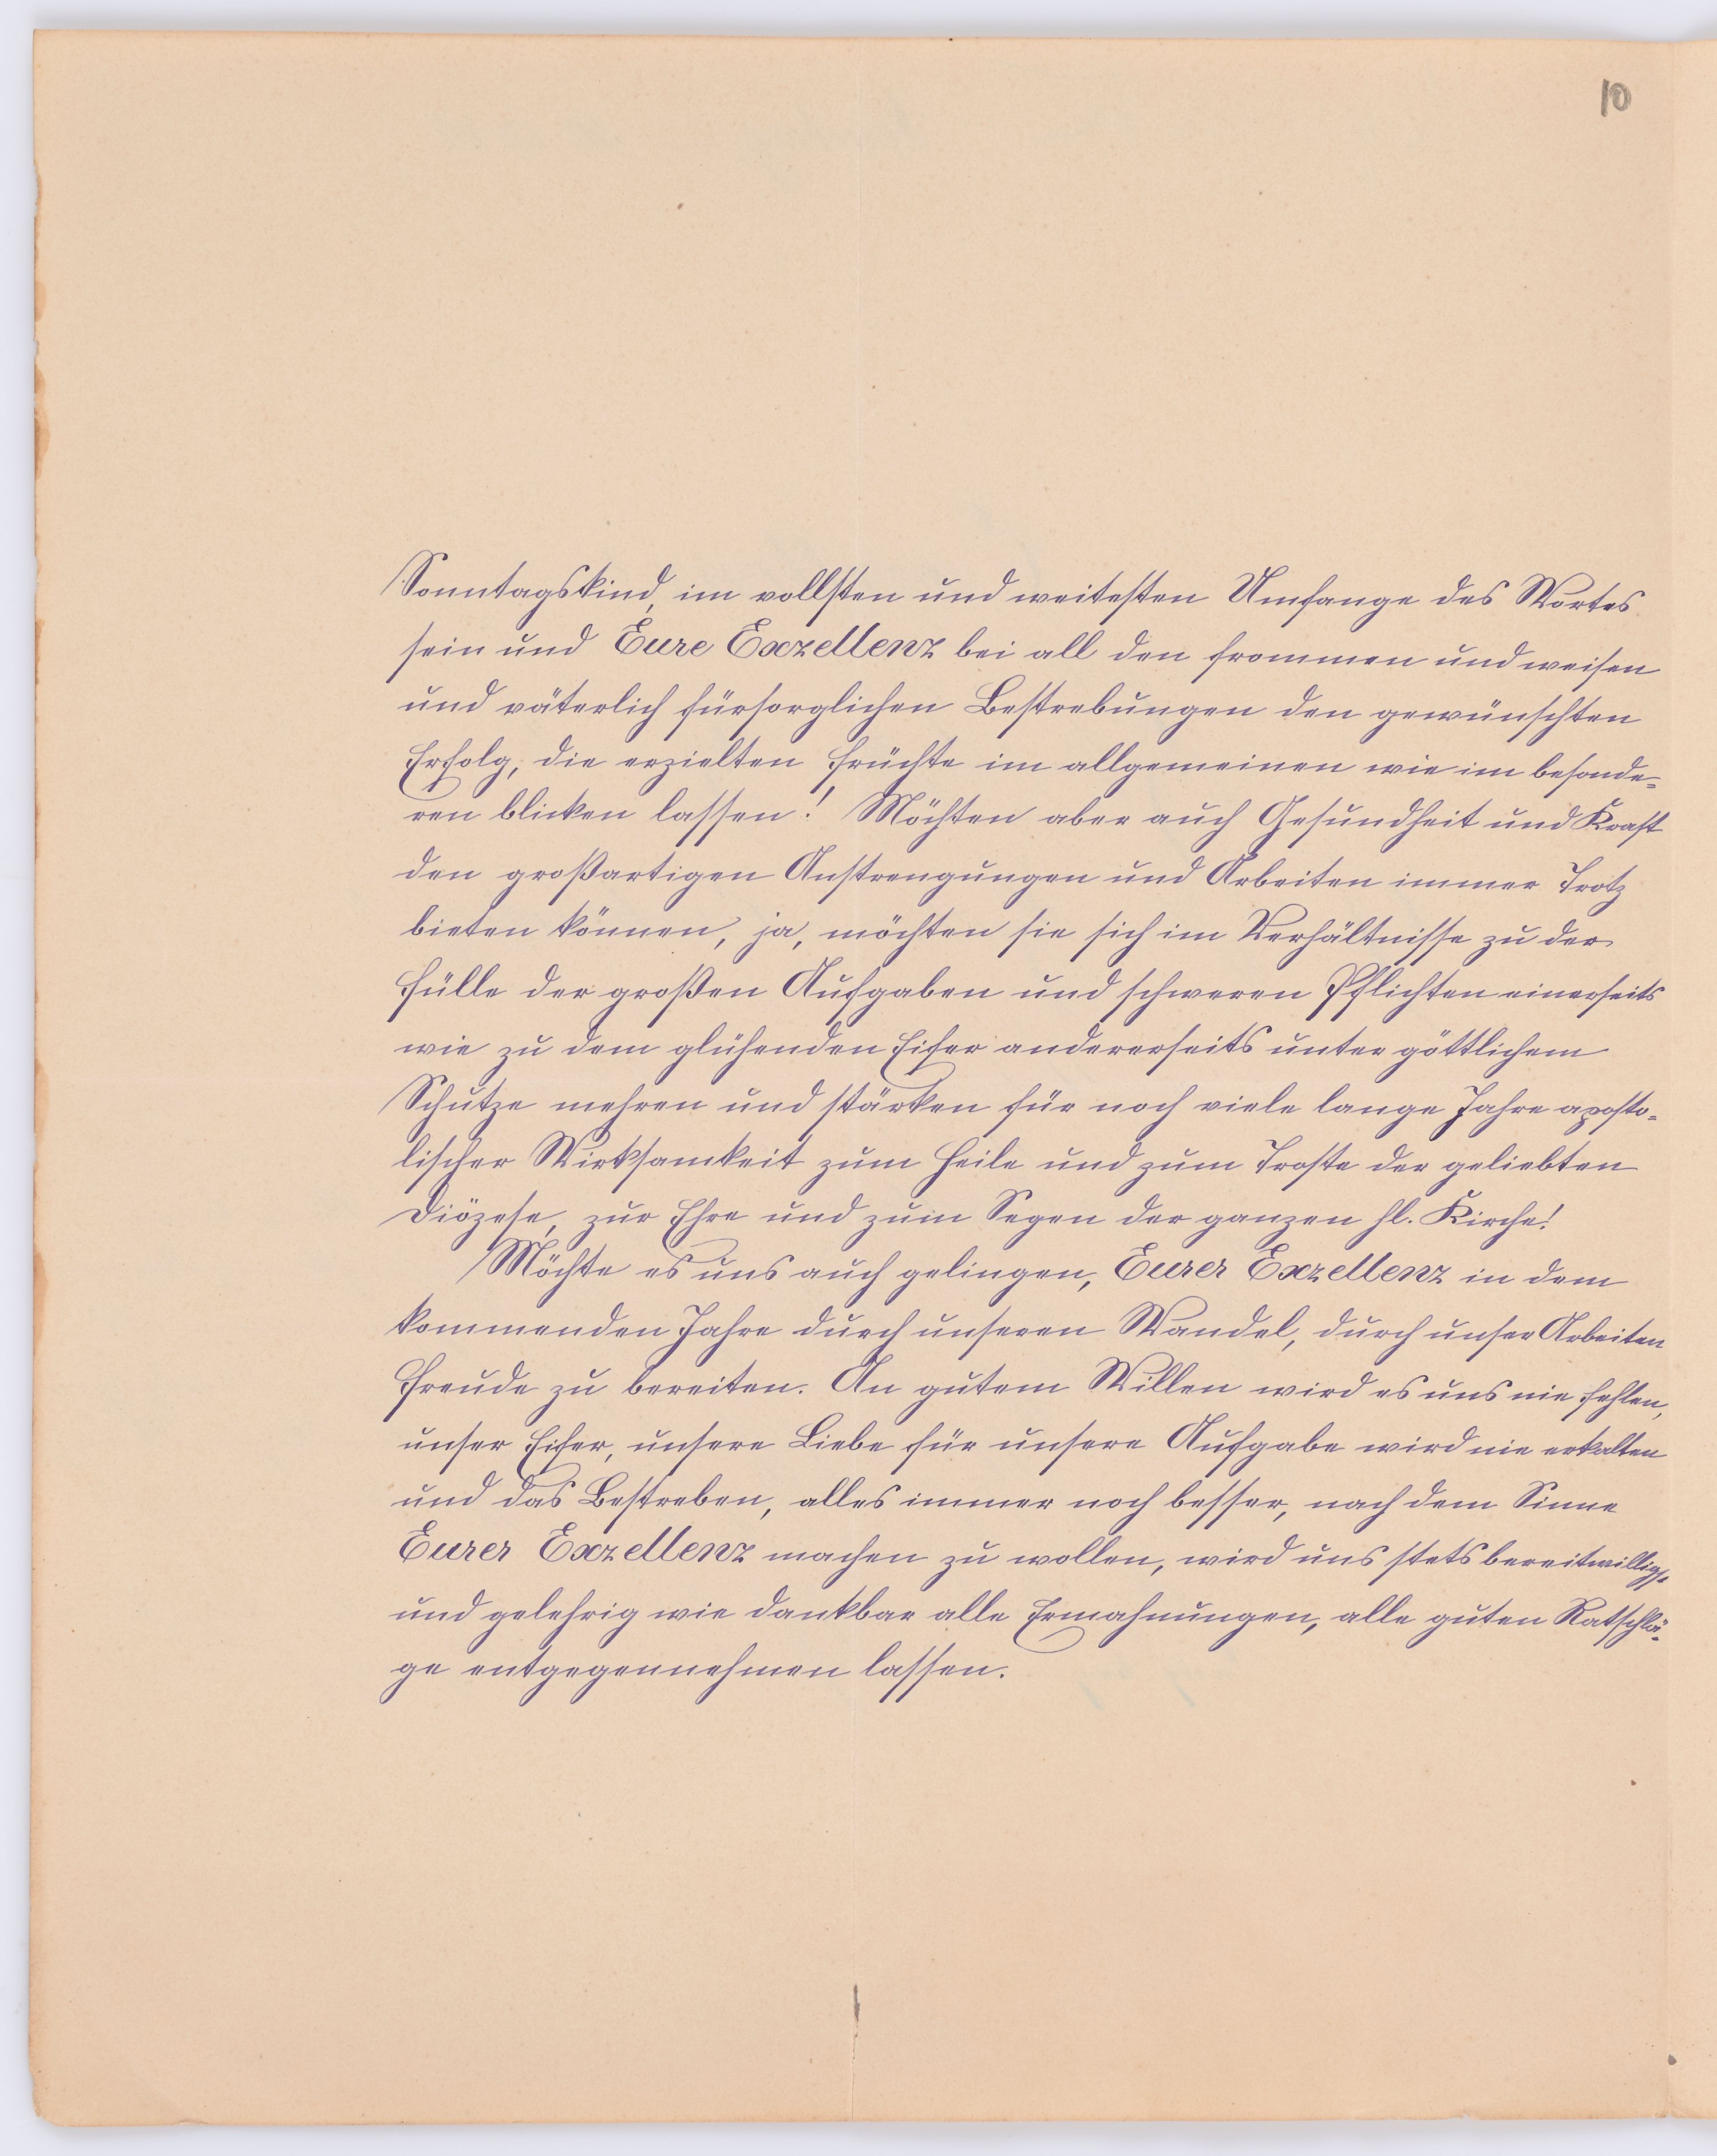 10
Sonntagskind im vollsten und weitesten Umfange des Wortes
sein und Eure Exzellenz bei all den frommen und weisen
und väterlich fürsorglichen Bestrebungen den gewünschten
Erfolg, die erzielten Früchte im allgemeinen wie im besonde-
ren blicken lassen! Möchten aber auch Gesundheit und Kraft
den großartigen Anstrengungen und Arbeiten immer Trotz
bieten können, ja, möchten sie sich im Verhältnisse zu der
Fülle der großen Aufgaben und schweren Pflichten einerseits
wie zu dem glühenden Eifer andererseits unter göttlichem
Schutze mehren und stärken für noch viele lange Jahre aposto-
lischer Wirksamkeit zum Heile und zum Troste der geliebten
Diözese, zur Ehre und zum Segen der ganzen hl. Kirche!
Möchte es uns auch gelingen, Eurer Exzellenz in dem
kommenden Jahre durch unseren Wandel, durch unser Arbeiten
Freude zu bereiten. An gutem Willen wird es uns nie fehlen,
unser Eifer, unsere Liebe für unsere Aufgabe wird nie erkalten
und das Bestreben, alles immer noch besser, nach dem Sinne
Eurer Exzellenz machen zu wollen, wird uns stets bereitwillig
und gelehrig wie dankbar alle Ermahnungen, alle guten Ratschlä-
ge entgegennehmen lassen.